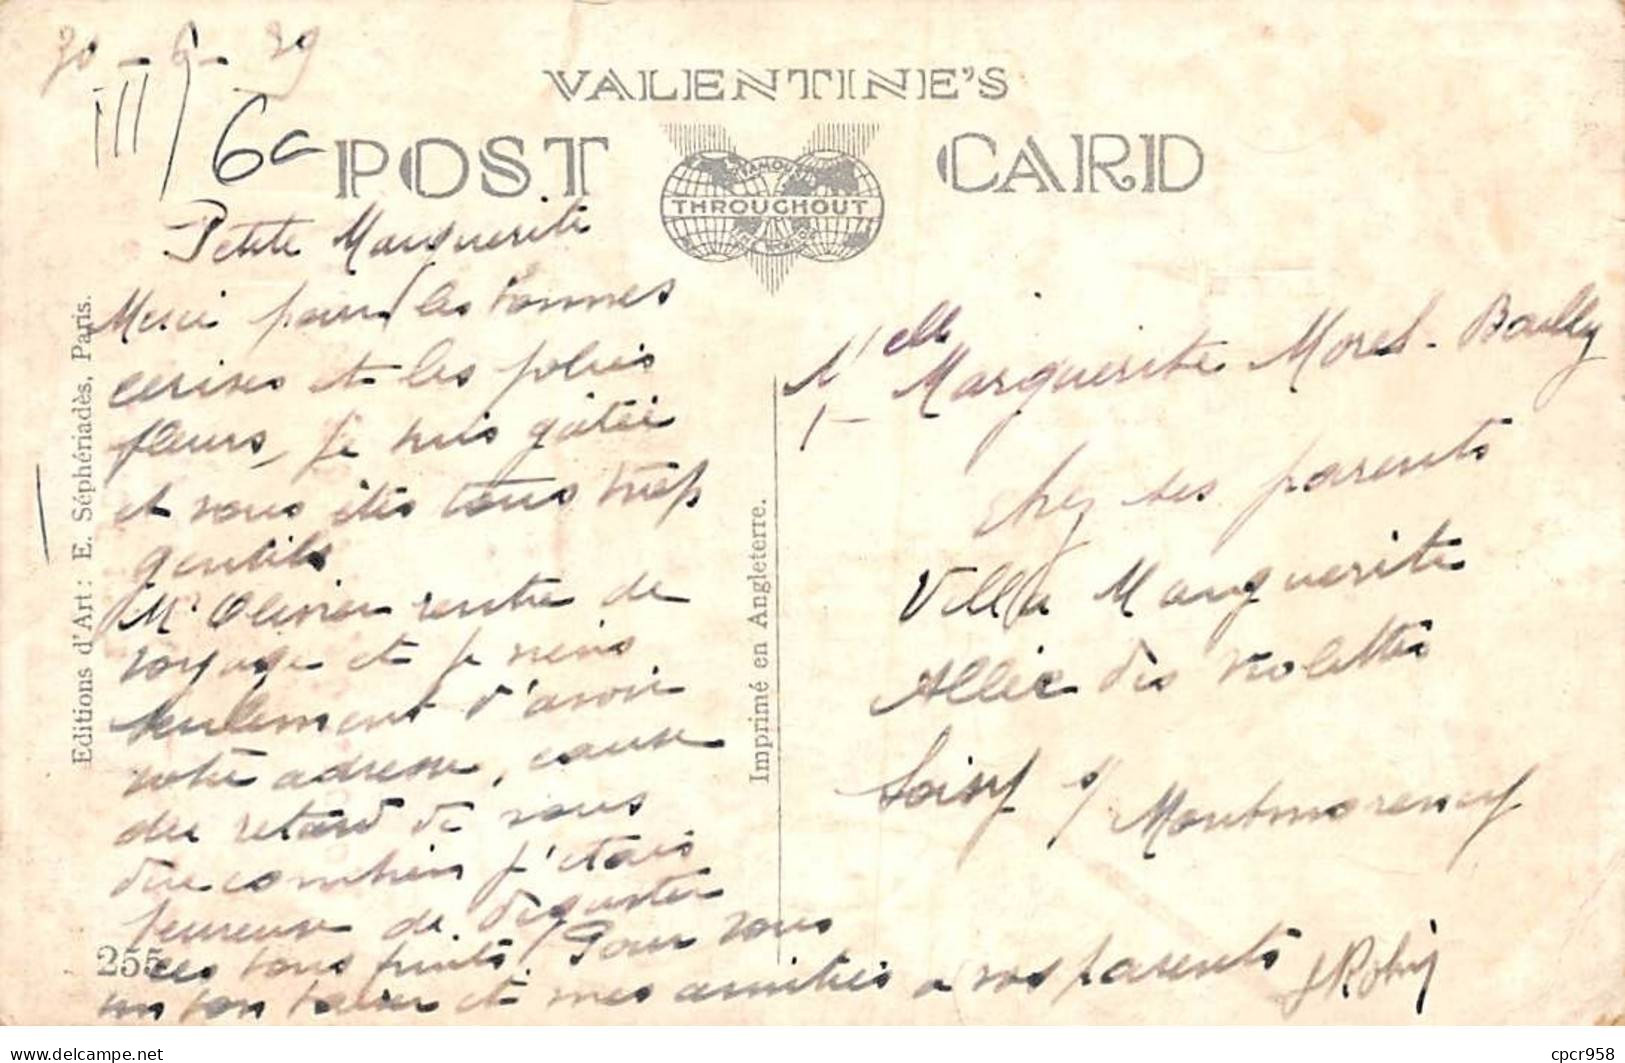 30 - 6 - 39
III
6c
VALENTINE'S
POST CARD
FAMOUS
THROUGHOUT
THE WORLD
Petite Marguerite
Merci pour les bonnes
cerises et les jolies
fleurs, je suis gâtée
et vous êtes tous trop
gentils
Mr Olivier rentre de
voyage et je viens
seulement d'avoir
votre adresse, cause
du retard de vous
dire combien j'étais
heureuse de déguster
ces bons fruits. Pour vous
un bon baiser et mes amitiés à vos parents
J Robin
Melle Marguerite Morel-Bailly
chez ses parents
Villa Marguerite
Allée des Violettes
Soisy s/ Montmorency
Editions d'Art : E. Séphériadès, Paris.
Imprimé en Angleterre.
255
www.delcampe.net
cpcr958